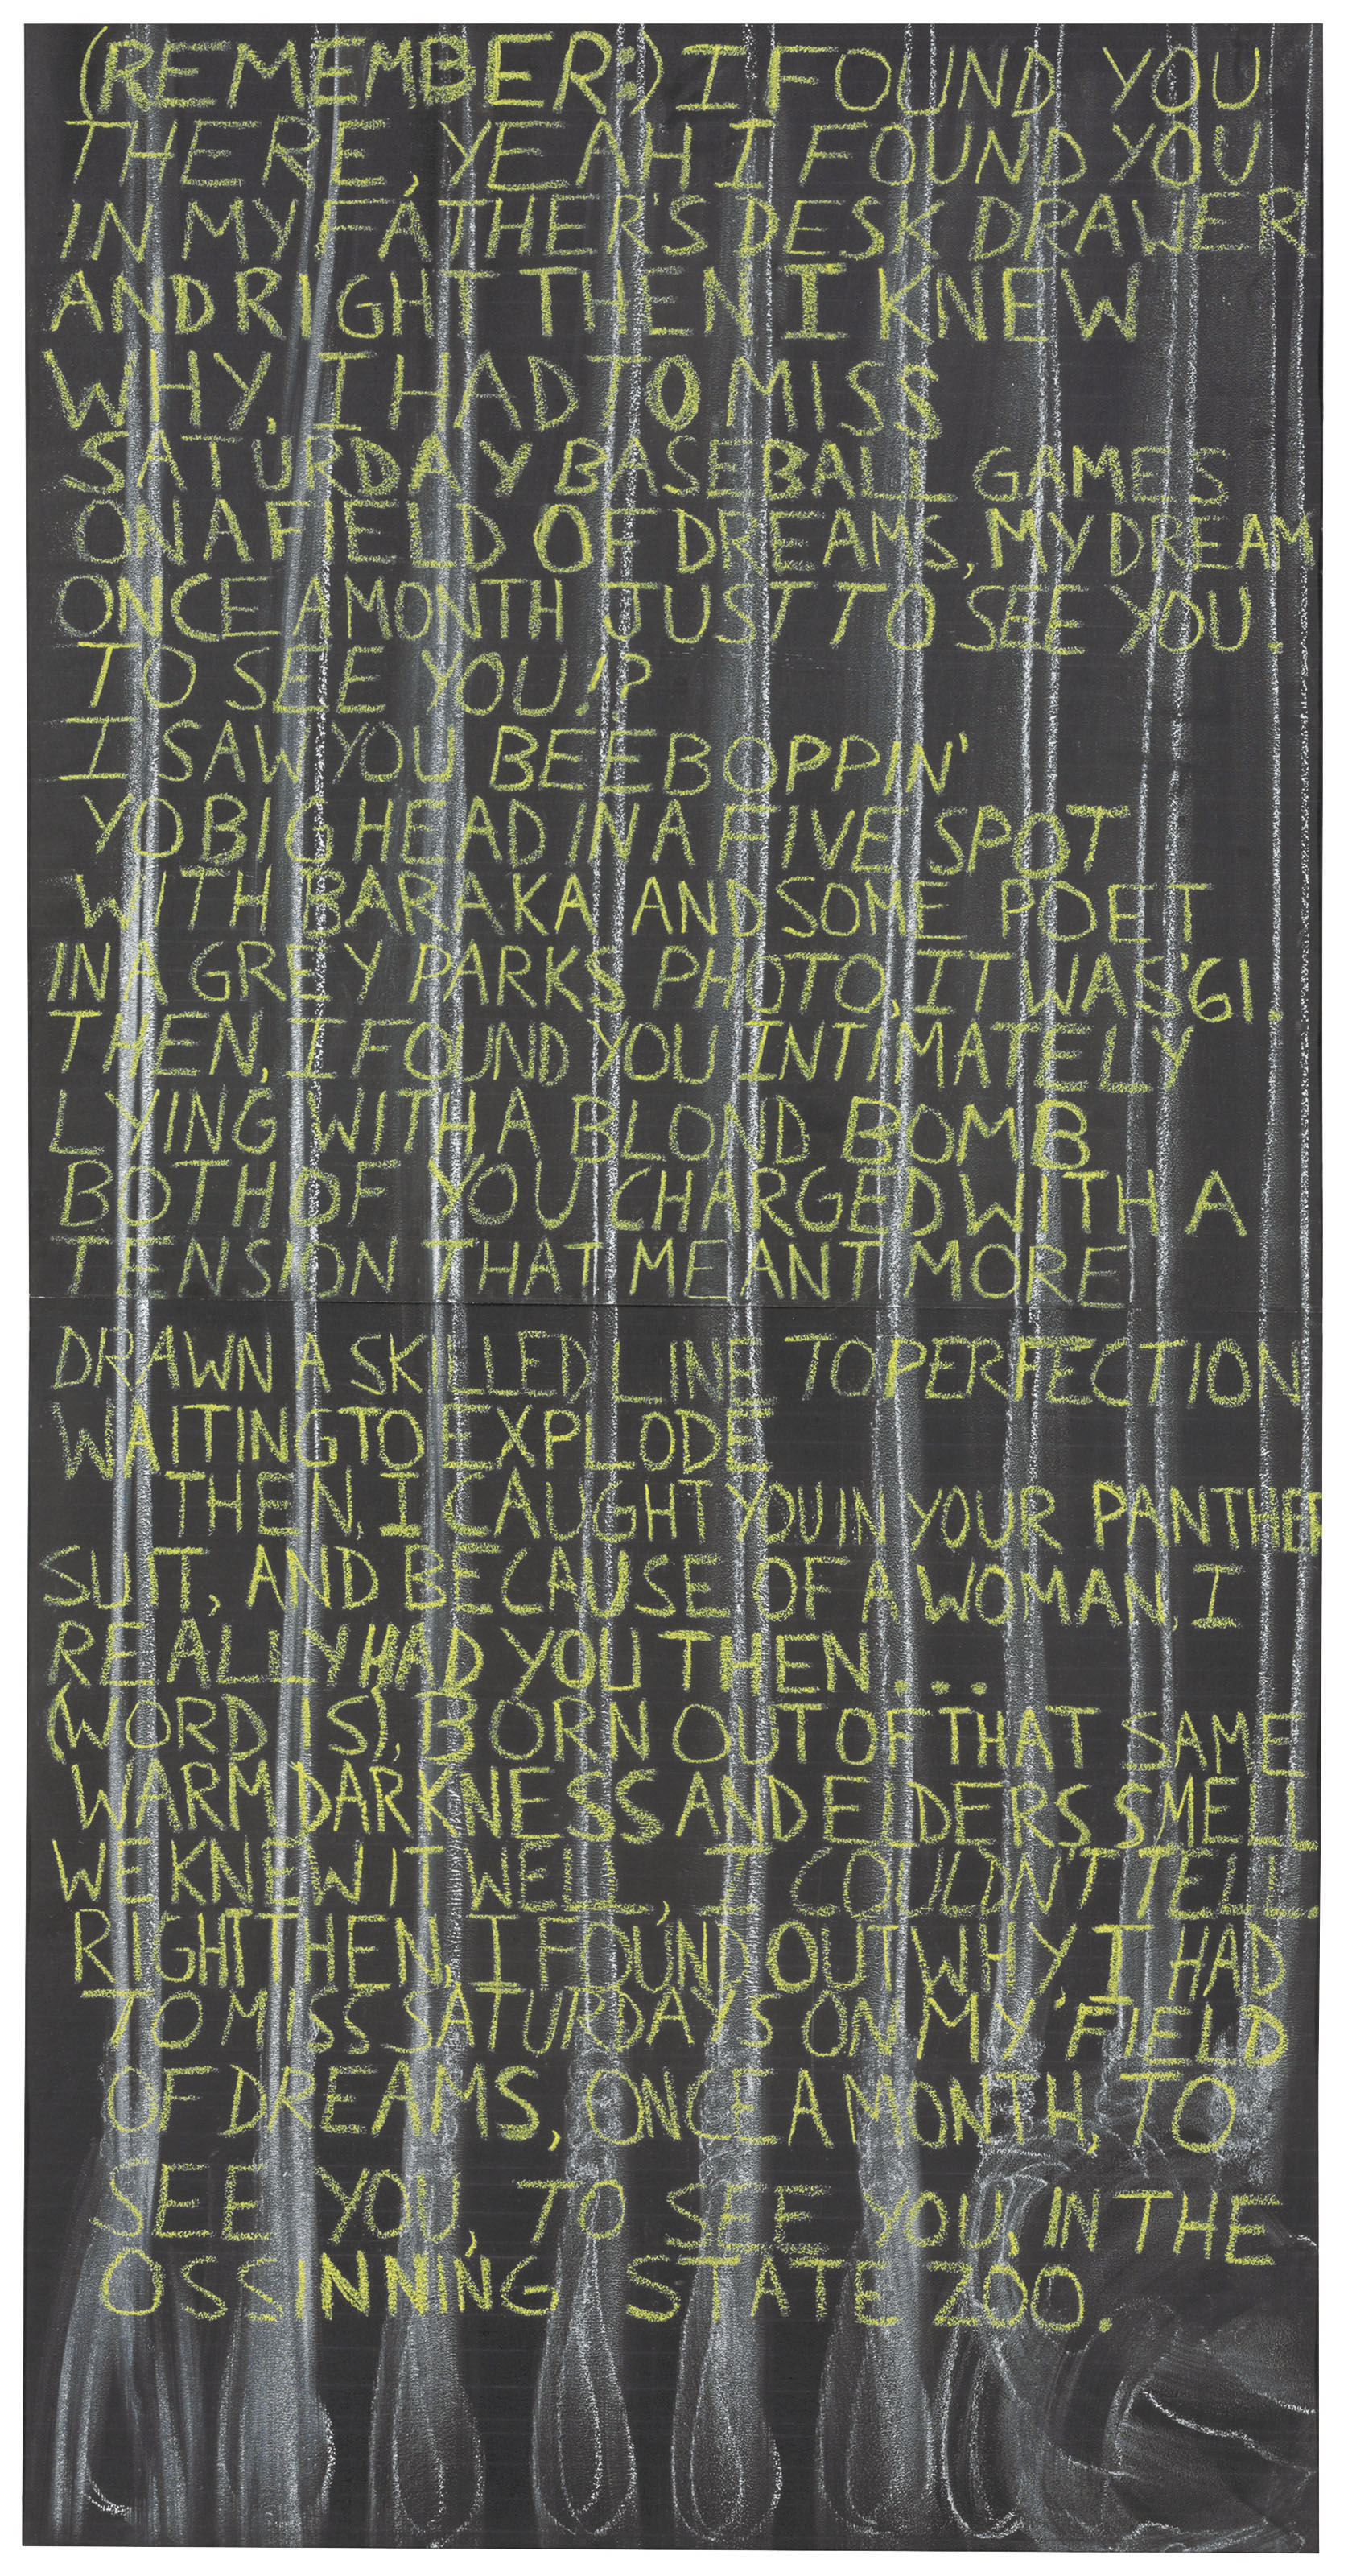 (REMEMBER:) I FOUND YOU
THERE, YEAH I FOUND YOU
IN MY FATHER'S DESK DRAWER
AND RIGHT THEN I KNEW
WHY, I HAD TO MISS
SATURDAY BASEBALL GAMES
ON A FIELD OF DREAMS, MY DREAM
ONCE A MONTH JUST TO SEE YOU.
TO SEE YOU!?
I SAW YOU BEEBOPPIN'
YO BIG HEAD IN A FIVE SPOT
WITH BARAKA AND SOME POET
IN A GREY PARKS PHOTO, IT WAS '61.
THEN, I FOUND YOU INTIMATELY
LYING WITH A BLOND BOMB
BOTH OF YOU CHARGED WITH A
TENSION THAT MEANT MORE
DRAWN A SKILLED LINE TO PERFECTION
WAITING TO EXPLODE
THEN, I CAUGHT YOU IN YOUR PANTHER
SUIT, AND BECAUSE OF A WOMAN, I
REALLY HAD YOU THEN...
(WORD IS), BORN OUT OF THAT SAME
WARM DARKNESS AND ELDERS SMELL
WE KNEW IT WELL, I COULDN'T TELL.
RIGHT THEN, I FOUND OUT WHY, I HAD
TO MISS SATURDAYS ON MY FIELD
OF DREAMS, ONCE A MONTH, TO
SEE YOU, TO SEE YOU, IN THE
OSSINNING STATE ZOO.